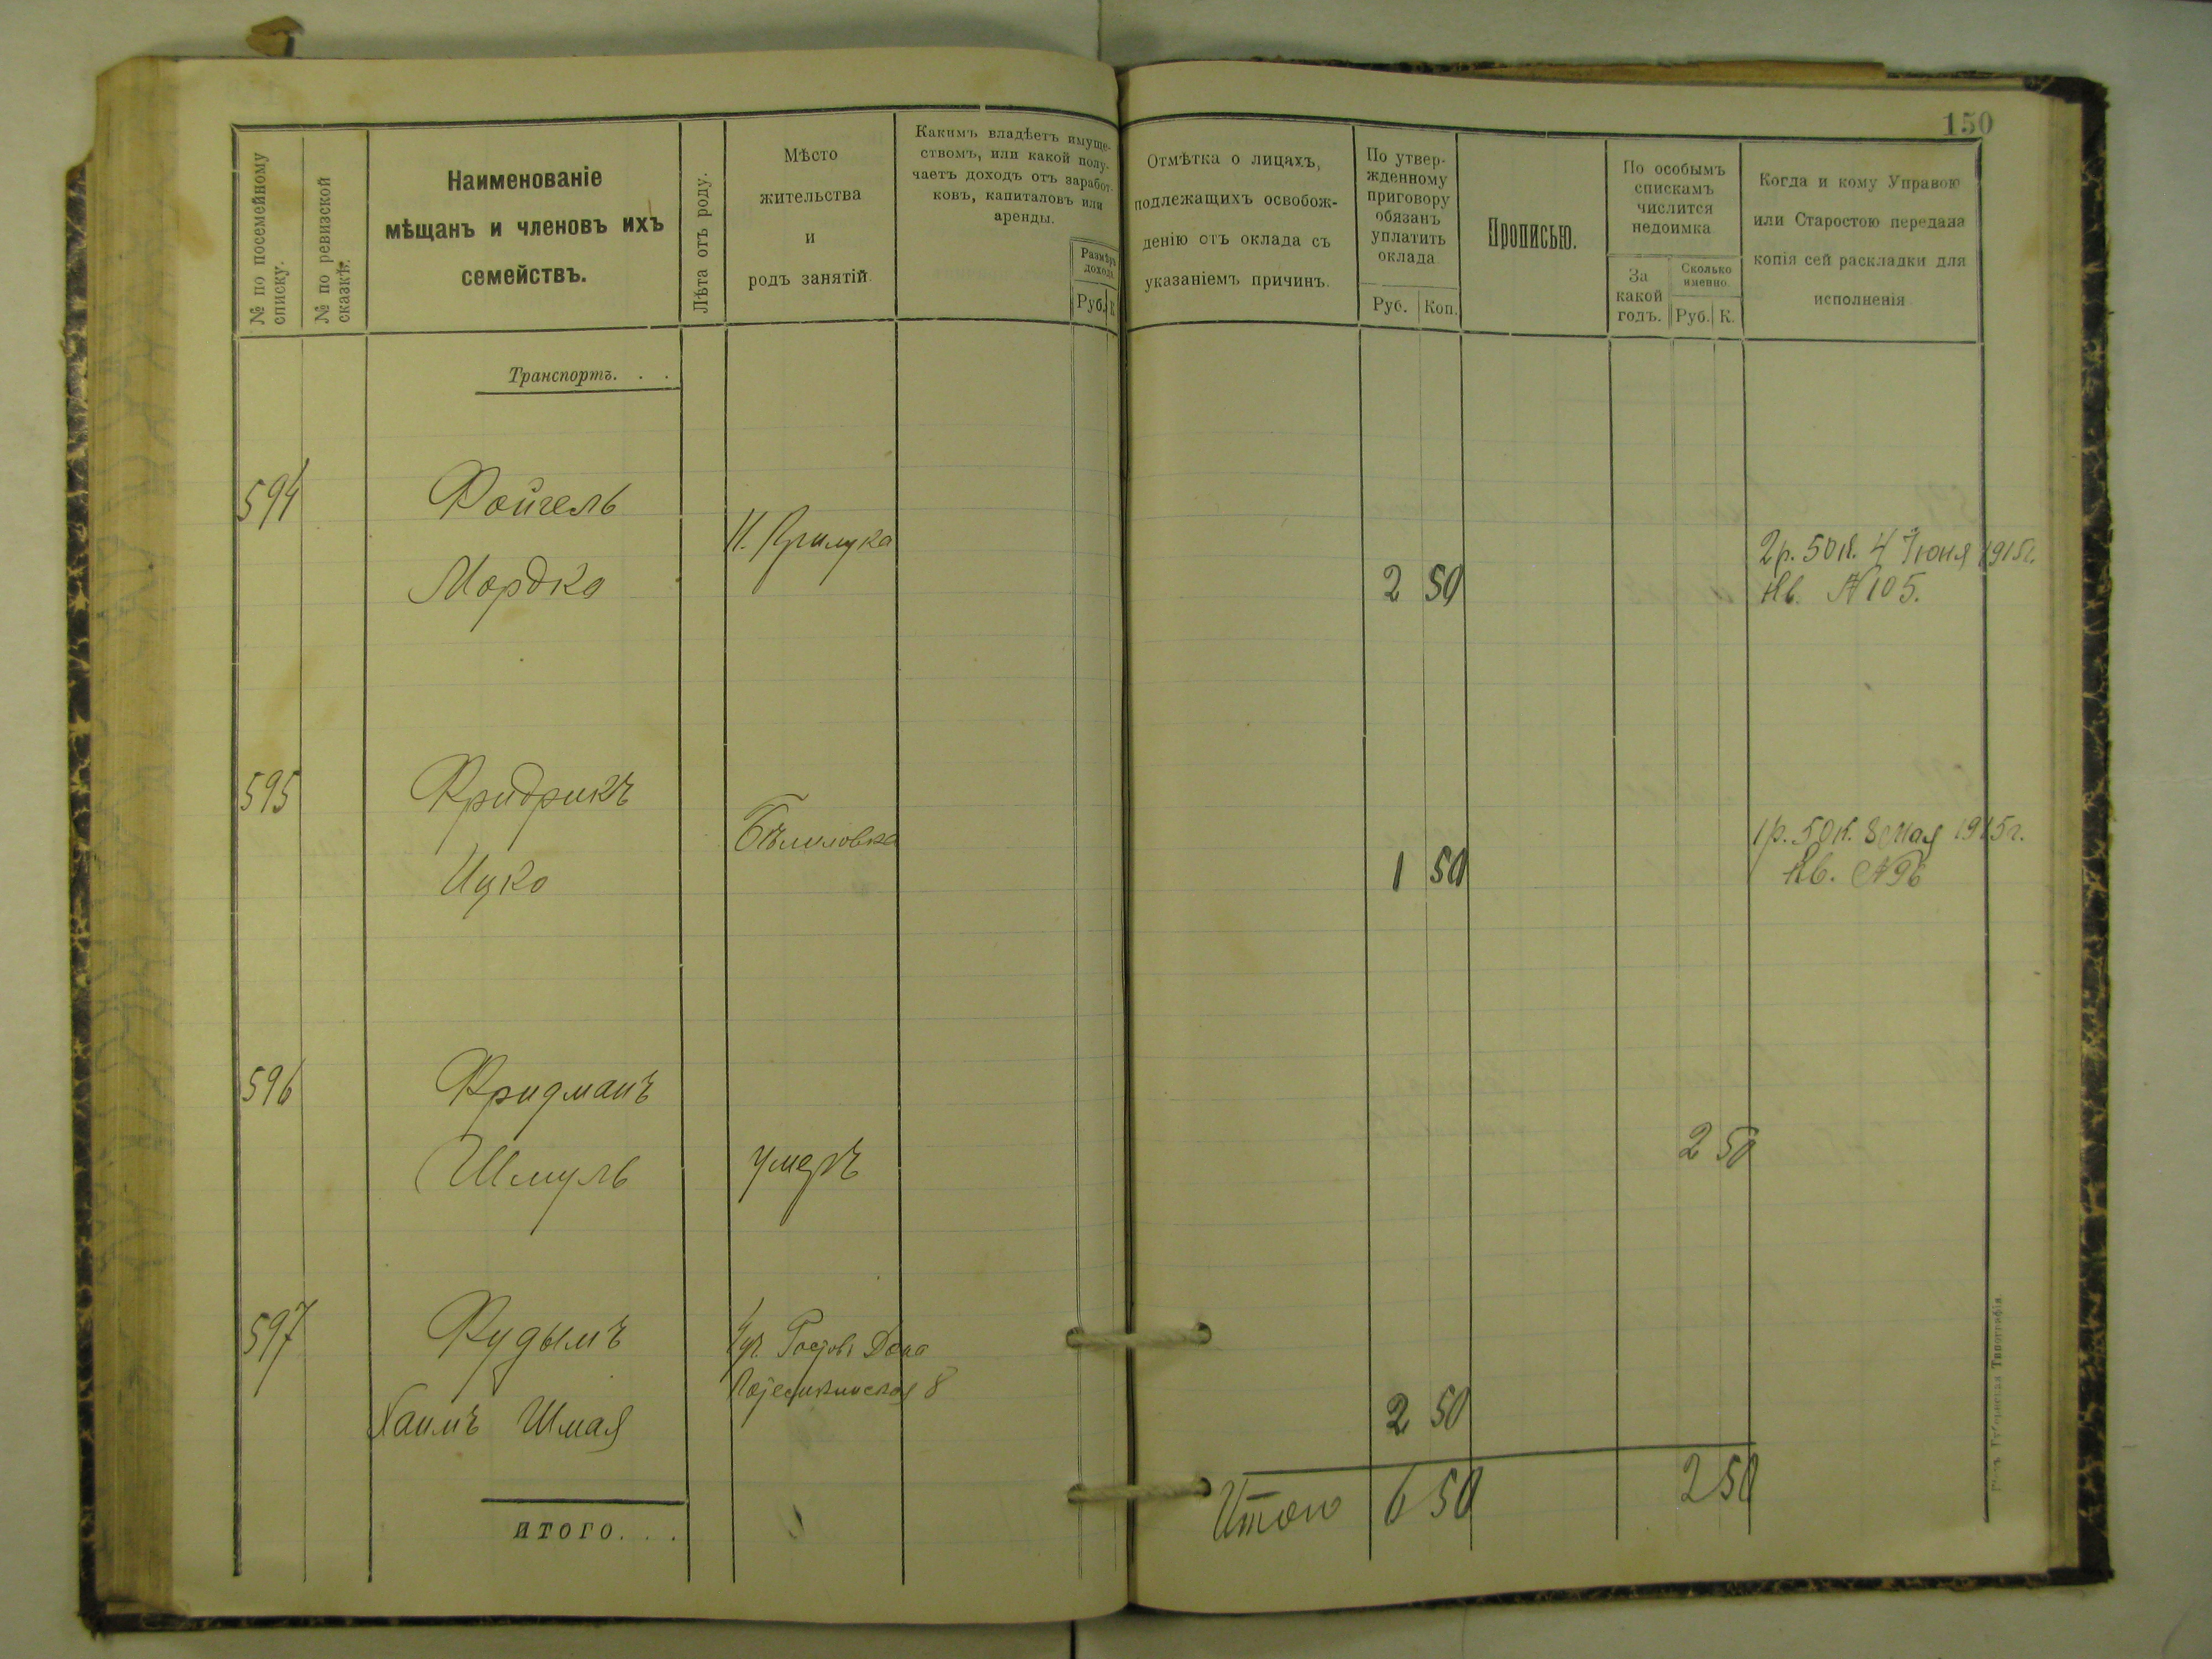 150
№ по посемейному
списку.
№ по ревизской
сказкѣ.
Наименованіе
мѣщанъ и членовъ ихъ
семействъ.
Лѣта отъ роду.
Мѣсто
жительства
и
родъ занятій.
Какимъ владѣетъ имуще-
ствомъ, или какой полу-
чаетъ доходъ отъ заработ-
ковъ, капиталовъ или
аренды.
Размѣръ
дохода.
Руб. К.
Отмѣтка о лицахъ,
подлежащихъ освобож-
денію отъ оклада съ
указаніемъ причинъ.
По утвер-
жденному
приговору
обязанъ
уплатить
оклада
Руб. Коп.
Прописью.
По особымъ
спискамъ
числится
недоимка
За
какой
годъ.
Сколько
именно.
Руб. К.
Когда и кому Управою
или Старостою передана
копія сей раскладки для
исполненія
Транспортъ. . .
594 Фойгель
Мордко
Прилука
2 50
2 р. 50 к. 4 Іюня 1915г.
Кв. № 105.
595 Фридрихъ
Ицко
Бѣлиловка
1 50
1 р. 50 к. 8 Мая 1915г.
Кв. № 96
596 Фридманъ
Шмуль
умеръ
2 50
597 Фудымъ
Хаимъ Шмая
Ростовъ Дона
8
2 50
итого. . .
Итого 6 50 2 50
Губернская Типографія.